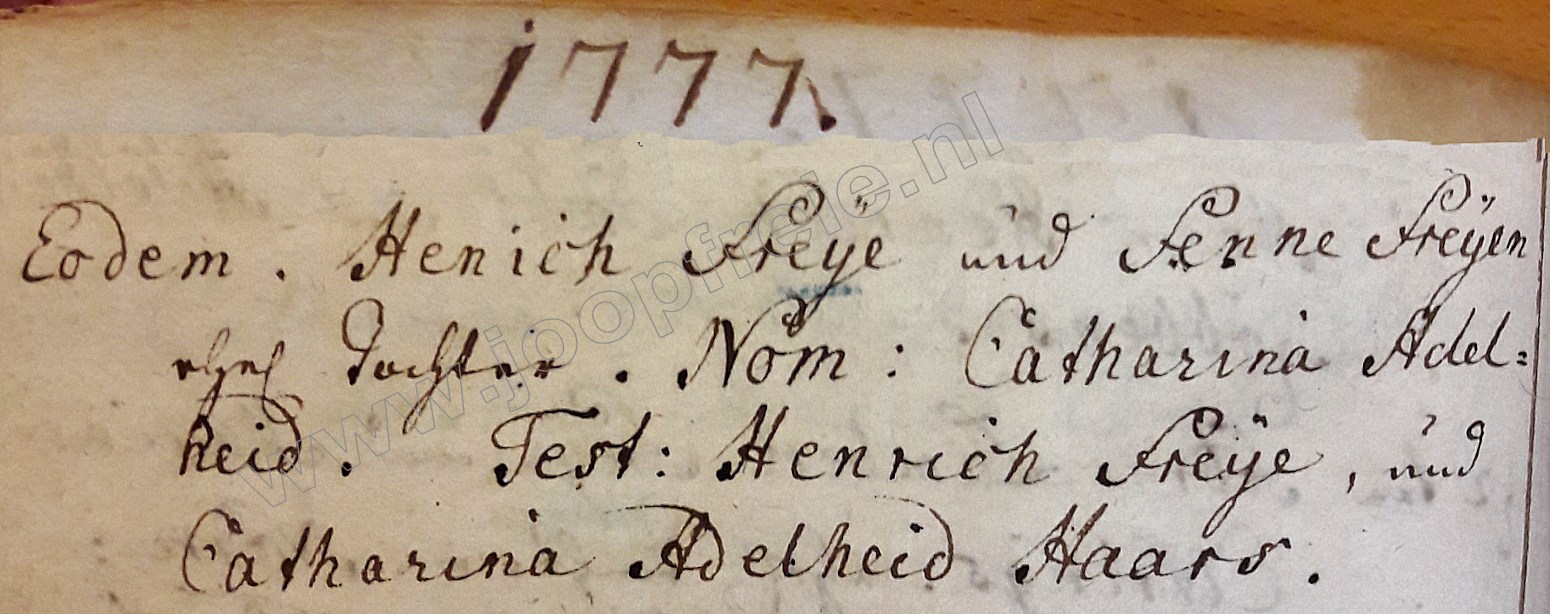 1777.
Eodem. Henich Freÿe und Fenne Freÿen
ehel Tochter. Nom: Catharina Adel=
heid. Test: Henrich Freÿe, und
Catharina Adelheid Haars.
www.joopfreie.nl